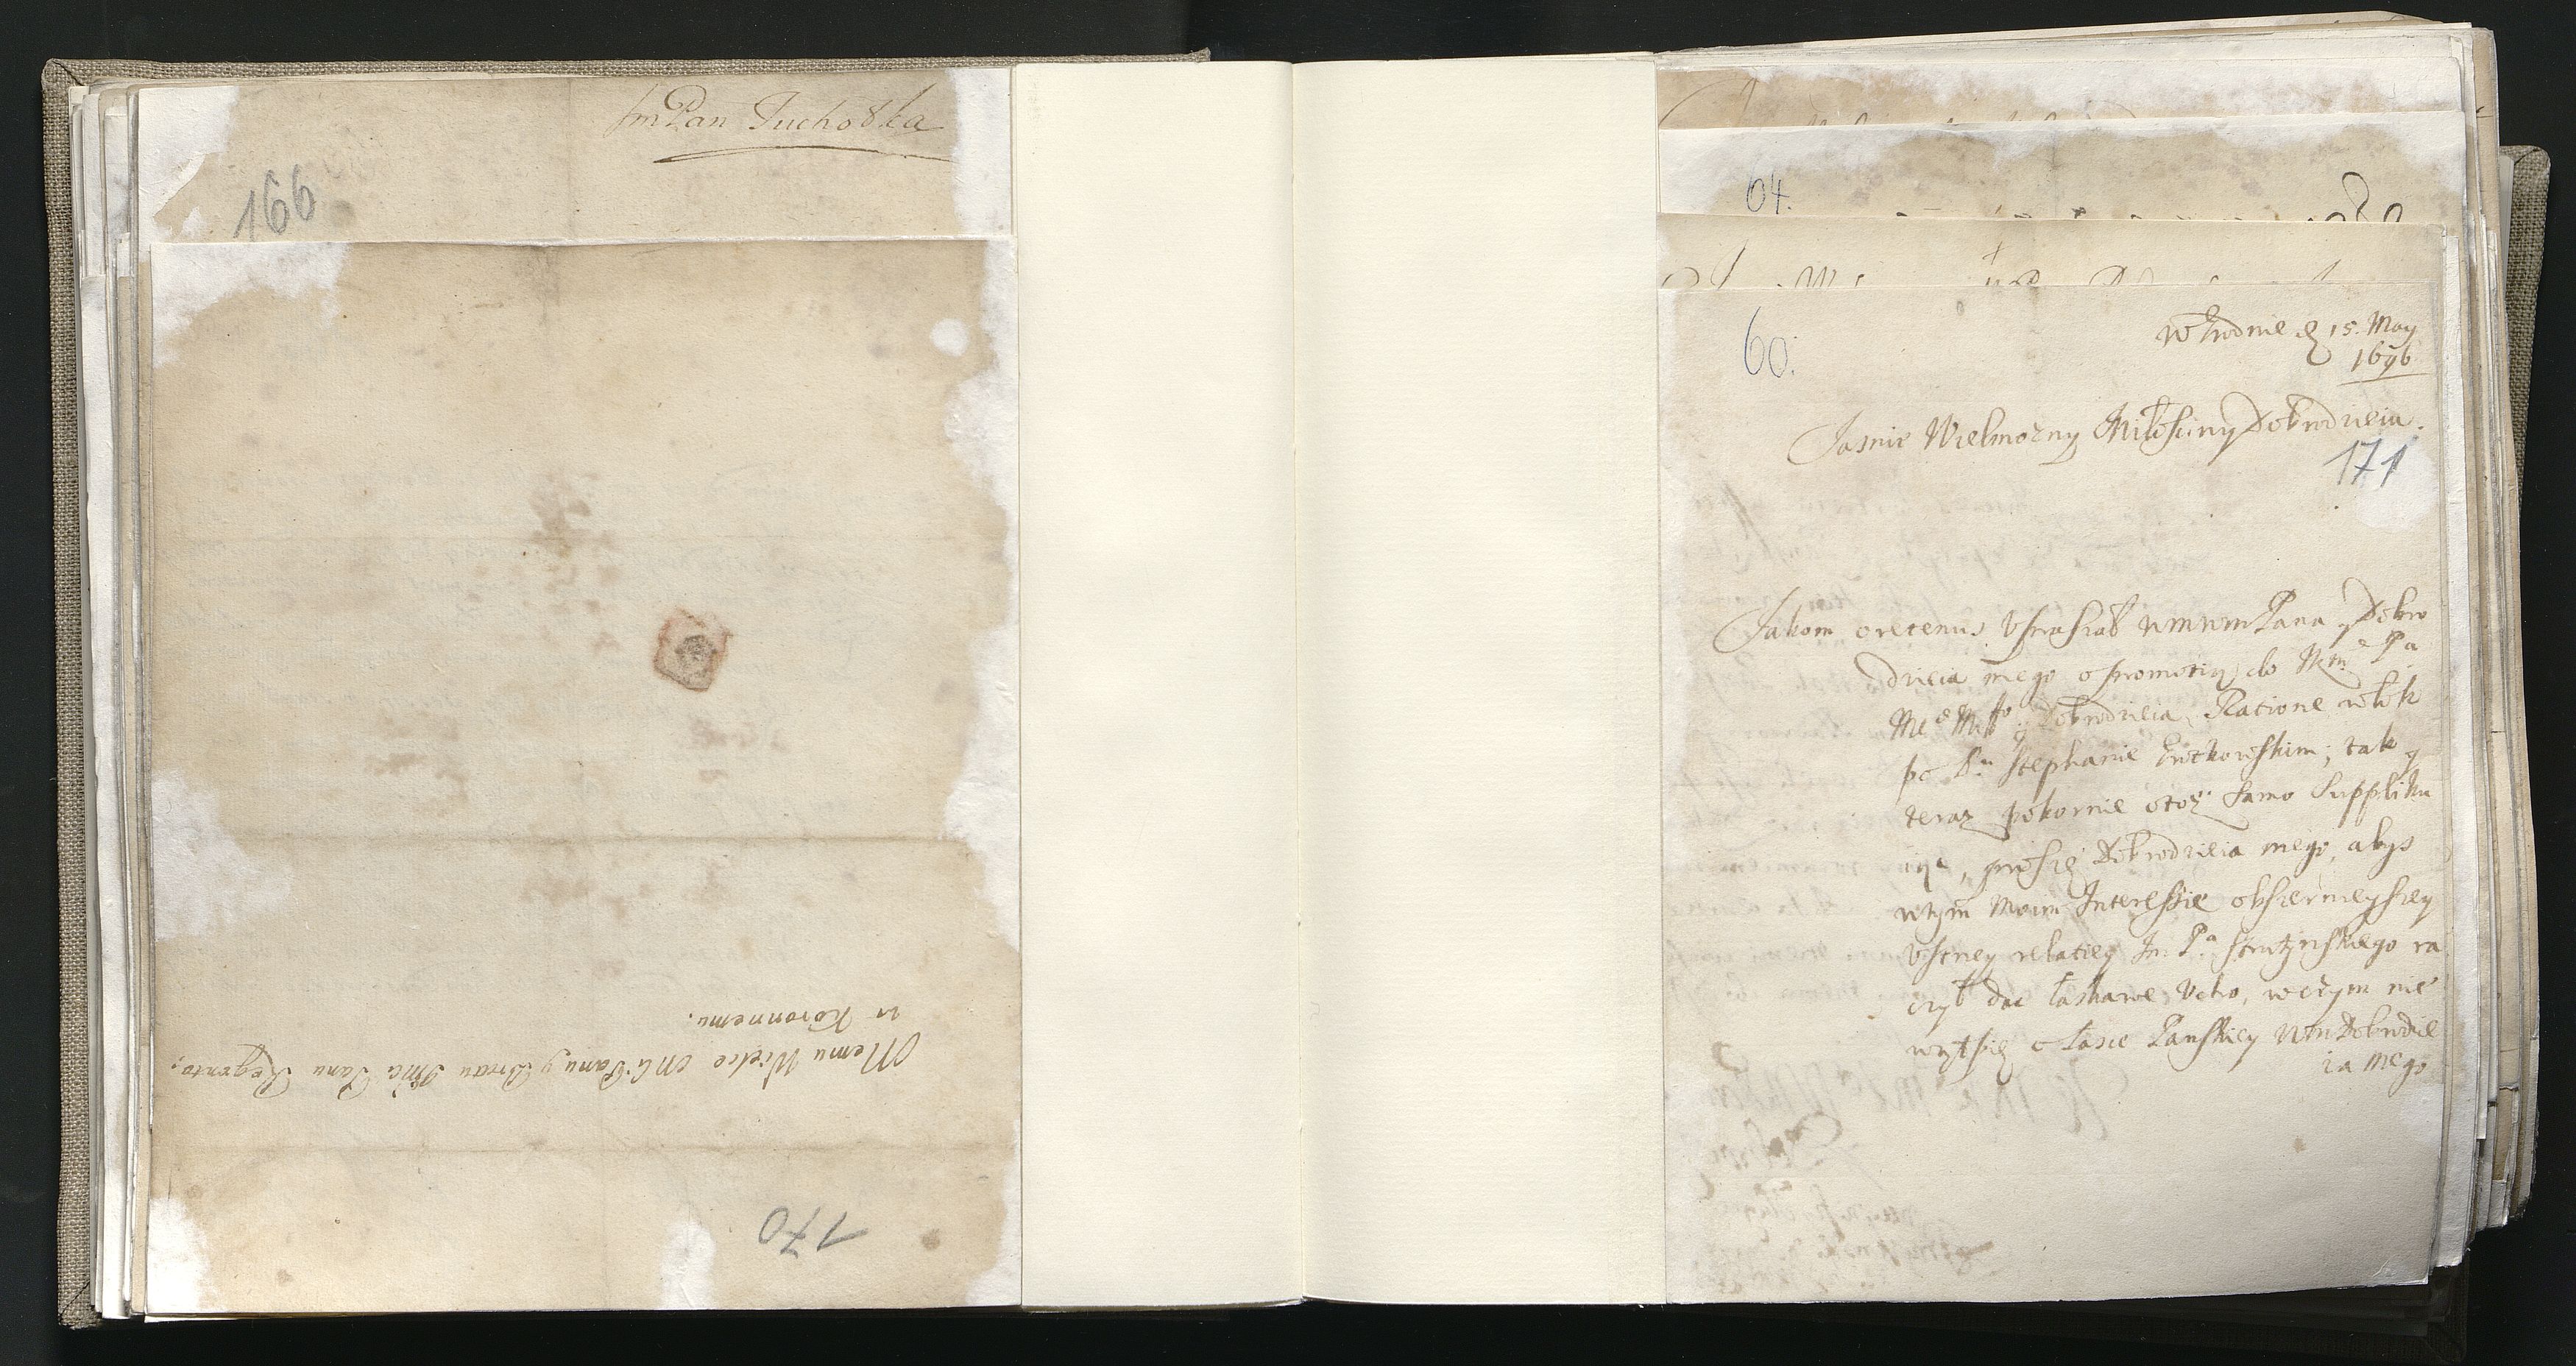 Jm Pan Tuchołka
166
Memu Wielce Mći Panu y Bratu Jmci Panu Regento,
wi Koronnemu.
170
64.
60.
w Grodnie d 15. May
1676
Jasnie Wielmozny Miłosciwy Dobrodzieiu.
171
Jakom oretenus upraszał WMWMPana Dobro
dzieia mego o promotią do
Dobrodzieia, Ratione włok
po Pu Stephanie tak y
teraz pokornie otoż samo suppliku
ię, proszę Dobrodzieia mego, abys
wtym moim Interessie obszernieyszey
ustney relatiey Im Pa Strutynskiego ra
czył dac łaskawe ucho, w czym nie
wątpię o łasce Panskiey WM Dobrodzie
ia mego